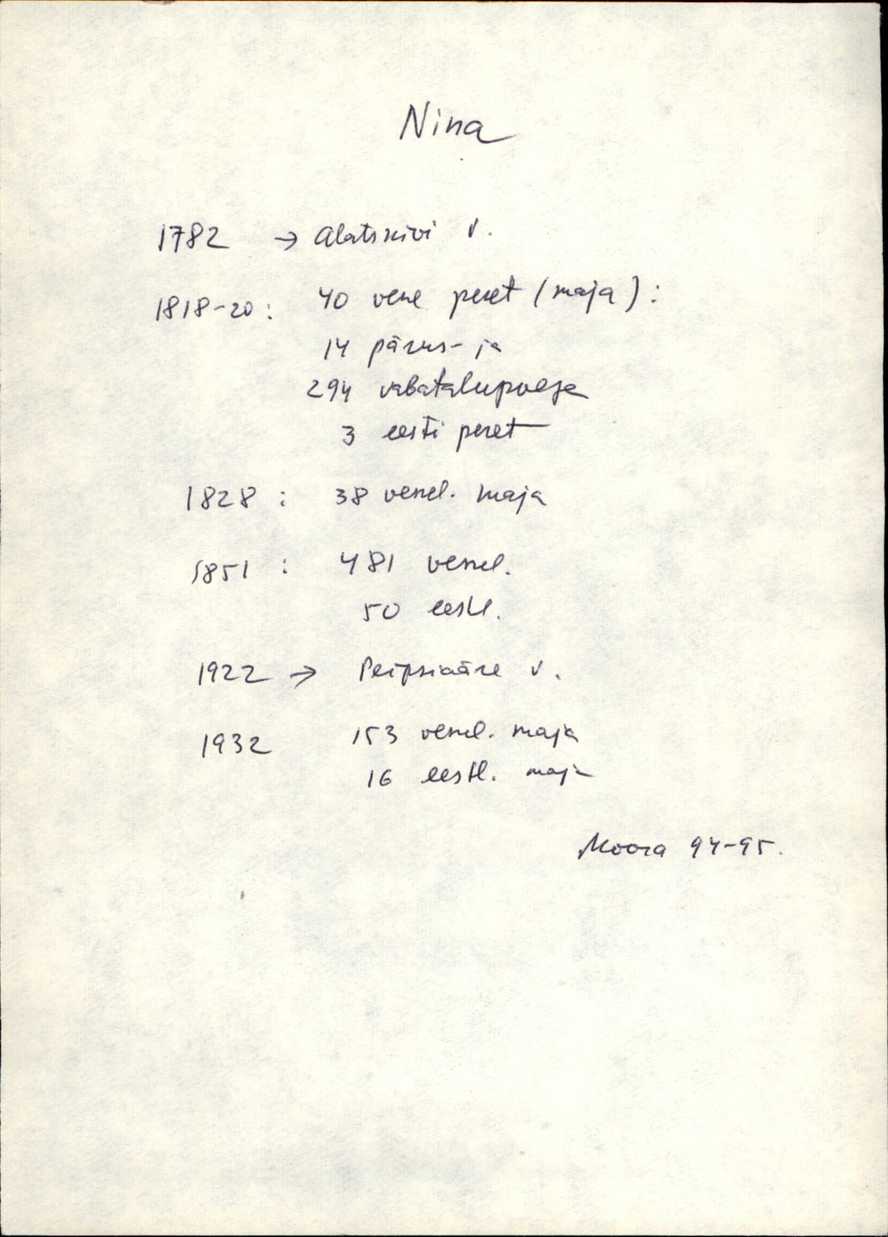 Nina
1782 → Alatskivi v.
1818-20: 40 vene peret (maja):
14 pärus- ja
294 vabatalupoega
3 eesti peret
1828 : 38 venel. maja
1851 : 481 venel.
50 eestl.
1922 → Peipsiääre v.
1932 153 venel. maja
16 eestl. maja
Moora 94-95.